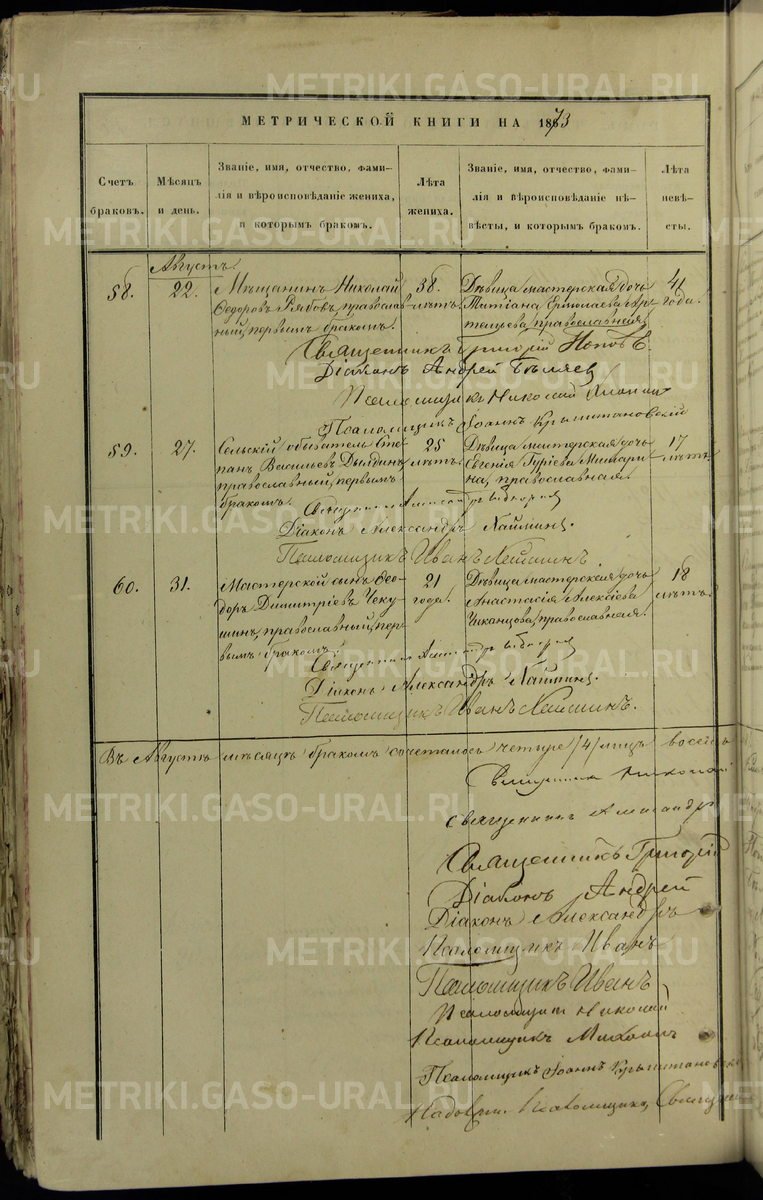 МЕТРИЧЕСКОЙ КНИГИ НА 1873
Счетъ браковъ.
Мѣсяцъ и день.
Званіе, имя, отчество, фами-
лія и вѣроисповѣданіе жениха,
и которымъ бракомъ.
Лѣта жениха.
Званіе, имя, отчество, фами-
лія и вѣроисповѣданіе не-
вѣсты, и которымъ бракомъ.
Лѣта невѣ-
сты.
Августъ
58. 22.
Мѣщанинъ Николай
Ѳедоровъ Рябовъ, православ-
ный, первымъ бракомъ.
38. лѣтъ.
Дѣвица мастерская дочь
Татіана Ермолаева
православная,
41 года.
Священникъ Григорій Поповъ.
Діаконъ Андрей Бѣляев
Псаломщикъ Николай
Псаломщикъ Іоаннъ Крыштановскій
59. 27.
Сельскій обыватель Сте-
панъ Васильевъ Дылдинъ
православный, первымъ
бракомъ.
25 лѣтъ.
Дѣвица мастерская дочь
Евгенія Гуріева Мишари-
на, православная.
17 лѣтъ.
Священникъ Александръ
Діаконъ Александръ Хлынинъ.
Псаломщикъ Иванъ
60. 31.
Мастерской сынъ Ѳео-
доръ Димитріевъ Чеку-
шинъ, православный, пер-
вымъ бракомъ.
21 года.
Дѣвица мастерская дочь
Анастасія Алексіева
Чиканцова, православная.
18 лѣтъ.
Священникъ Александръ
Діаконъ Александръ
Псаломщикъ Иванъ
Въ Августѣ мѣсяцѣ бракомъ сочеталось четыре /4/ лицъ восемь
Священникъ Николай
Священникъ Александръ
Священникъ Григорій
Діаконъ Андрей
Діаконъ Александръ
Псаломщикъ Иванъ
Псаломщикъ Иванъ
Псаломщикъ Николай
Псаломщикъ Михаилъ
Псаломщикъ Іоаннъ Крыштановскій
METRIKI.GASO-URAL.RU